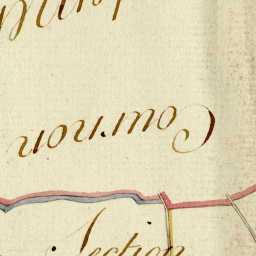 Common
Section